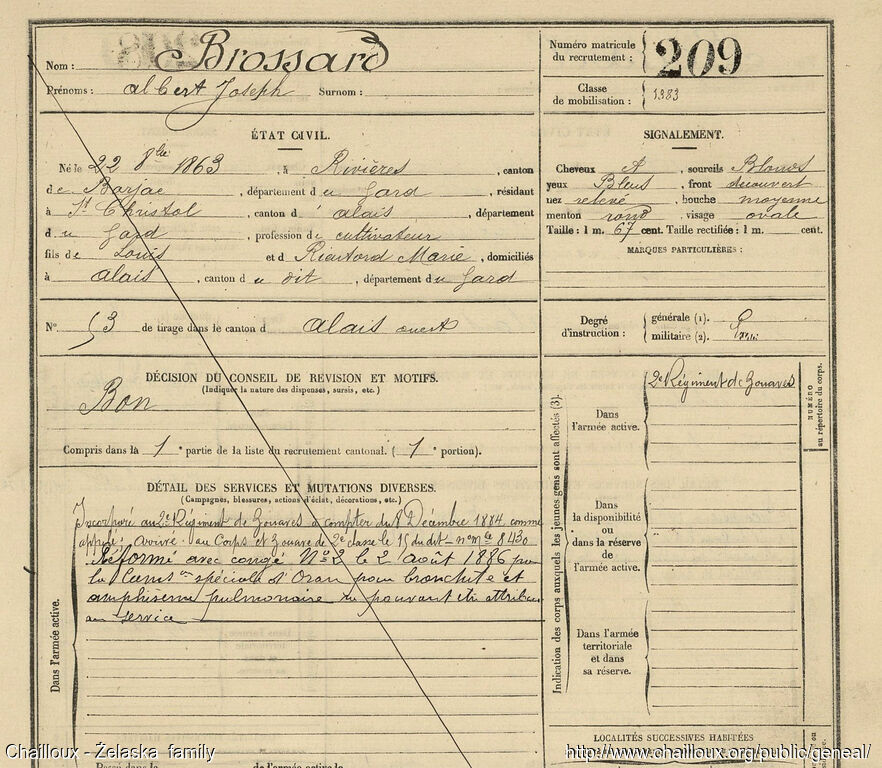 Nom : Brossard
Prénoms : Albert Joseph Surnom :
Numéro matricule
du recrutement : 209
Classe
de mobilisation : 1883
ÉTAT CIVIL.
Né le 22 8bre 1863, à Rivières, canton
de Barjac, département du Gard, résidant
à St Christol, canton d'alais, département
du Gard, profession de cultivateur
fils de Louis et d Marie, domiciliés
à alais, canton du dit, département du Gard
SIGNALEMENT.
Cheveux et, sourcils Blonds
yeux Bleus, front découvert
nez relevé, bouche moyenne
menton rond, visage ovale
Taille : 1 m. 67 cent. Taille rectifiée : 1 m. cent.
MARQUES PARTICULIÈRES :
N° 53 de tirage dans le canton d alais ouest
Degré
d'instruction :
générale (1).
militaire (2).
DÉCISION DU CONSEIL DE REVISION ET MOTIFS.
(Indiquer la nature des dispenses, sursis, etc.)
Bon
Compris dans la 1e partie de la liste du recrutement cantonal. (1e portion).
DÉTAIL DES SERVICES ET MUTATIONS DIVERSES.
(Campagnes, blessures, actions d'éclat, décorations, etc.)
Dans l'armée active.
Incorporé au 2e Régiment de Zouaves à compter du 8 Décembre 1884 comme
appelé, arrivé au Corps et Zouave de 2e classe le 15 du dit nº mle 8430
Réformé avec congé Nº 2 le 2 août 1886 par
la Comson spéciale d'Oran pour bronchite et
amphisème pulmonaire ne pouvant être attribué
au service
Passé dans la de l'armée active le
Indication des corps auxquels les jeunes gens sont affectés (3).
Dans
l'armée active.
2e Régiment de Zouaves
NUMÉRO
au répertoire du corps.
Dans
la disponibilité
ou
dans la réserve
de
l'armée active.
Dans l'armée
territoriale
et dans
sa réserve.
LOCALITÉS SUCCESSIVES HABITÉES
Chailloux - Želaska family
http://www.chailloux.org/public/geneal/